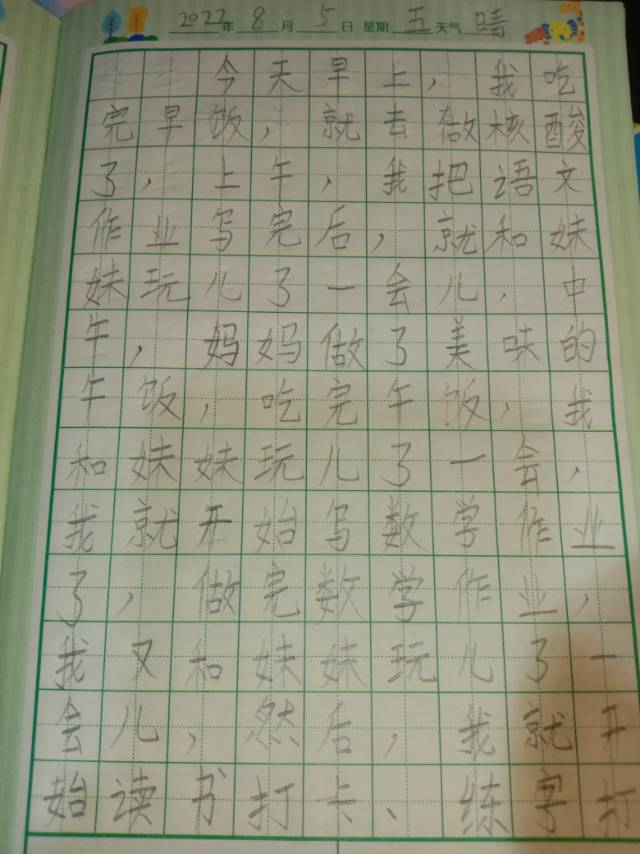 2022年8月5日 星期五 天气 晴
今天早上，我吃
完早饭，就去做核酸
了，上午，我把语文
作业写完后，就和妹
妹玩儿了一会儿，中
午，妈妈做了美味的
午饭，吃完午饭，我
和妹妹玩儿了一会，
我就开始写数学作业
了，做完数学作业，
我又和妹妹玩儿了一
会儿，然后，我就开
始读书打卡、练字打